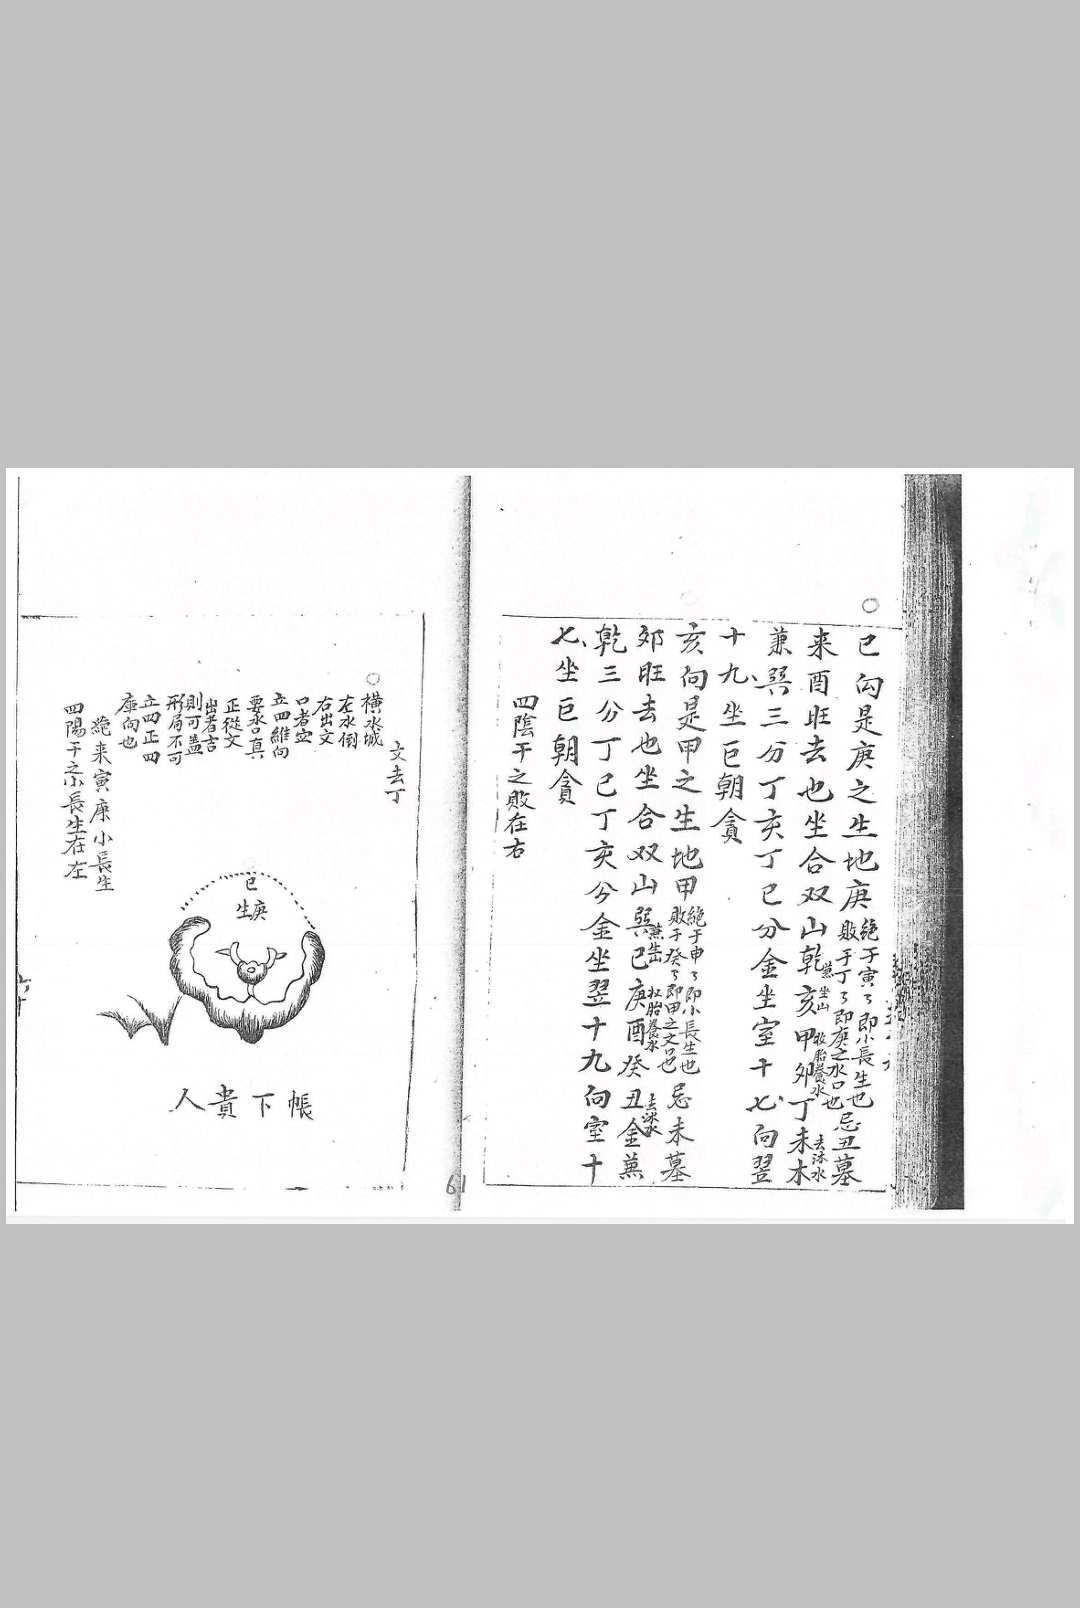 巳向是庚之生地庚
絶于寅々即小長生也
敗于丁々即庚之水口也
忌丑墓
来酉旺去也坐合双山乾
兼坐山
亥甲卯
收胎養水
丁未木
去沐水
兼巽三分丁亥丁巳分金坐室十七向翌
十九坐巨朝貪
亥向是甲之生地甲
絶于申々即小長生也
敗于癸々即甲之文
忌未墓
卯旺去也坐合双山巽
巳庚酉
收胎養水
癸丑金兼
去沐水
乾三分丁巳丁亥分金坐翌十九向室十
七坐巨朝貪
四陰干之敗在右
文去丁
横水城
左水倒
右出文
口者宜
立四維向
要水口真
正從文
出者吉
則可盖
形局不可
立四正四
庫向也
絶来寅庚小長生
四陽干之小長生在左
巳
庚生
帳下貴人
61